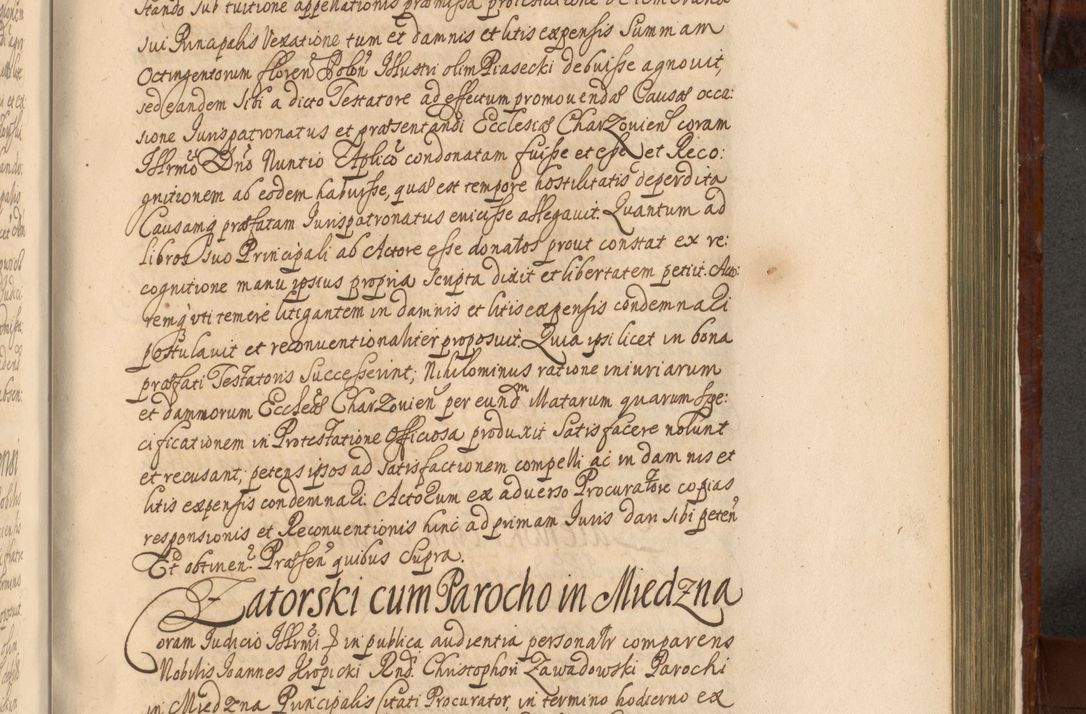 stando sub tuitione appellationis præmissa protestatione de temeraria
sui Principalis Vexatione tum et damnis et litis expensis Summam
Octingentorum floren Polon Illustri olim Piasecki debuisse agnovit,
sed eandem sibi a dicto Testatore ad effectum promovendæ Causæ occa:
sione Iurispatronatus et præsentandi Ecclesiæ CharZovien coram
Illrmo Dno Nuntio Aplico condonatam fuisse et esse, et Reco:
gnitionem ab eodem habuisse, quæ est tempore hostilitatis deperdita
Causamq præfatam Iurispatronatus evicisse allegavit. Quantum ad
libros suo Principali ab Actore esse donatos prout constat ex re:
cognitione manu ipsius propria scripta dixit et libertatem petiit. Acto:
remq uti temere litigantem in damnis et litis expensis condemnari
postulavit et reconventionaliter proposuit. Quia ipsi licet in bona
præfati Testatoris Successerint, Nihilominus ratione iniuriarum
et damnorum Eccleæ CharZovien per eundm Illatarum quarum spe:
cificationem in Protestatione Officiosa produxit Satisfacere nolunt
et recusant, petens ipsos ad satisfactionem compelli ac in damnis et
litis expensis condemnari. Actorum ex adverso Procuratore copias
responsionis et Reconventionis hinc ad primam Iuris dari sibi peten
Et obtinen. Præsen quibus supra.
Zatorski cum Parocho in Miedzna
Coram Iudicio Illrmi P in publica audientia personalr comparens
Nobilis Ioannes Kropicki Rnd Christophori Zawadowski Parochi
in Miedzna Principalis Citati Procurator, in termino hodierno ex